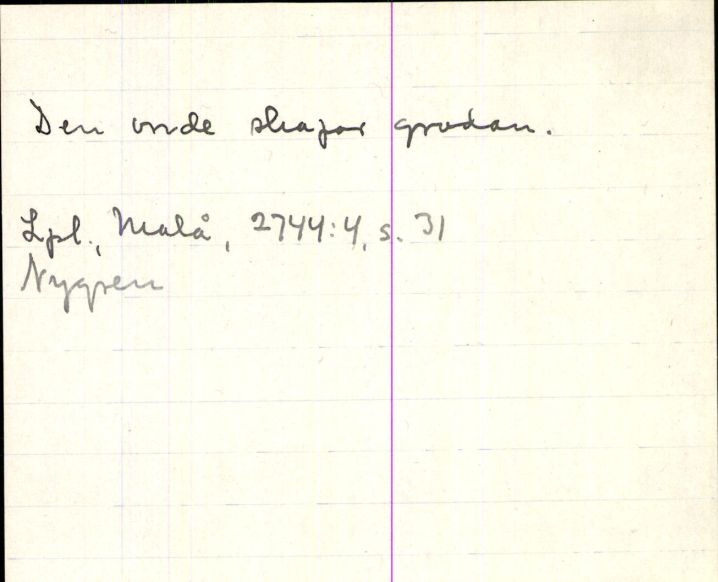 Den onde skapar grodan.
Lpl., Malå, 2744:4, s. 31
Nygren